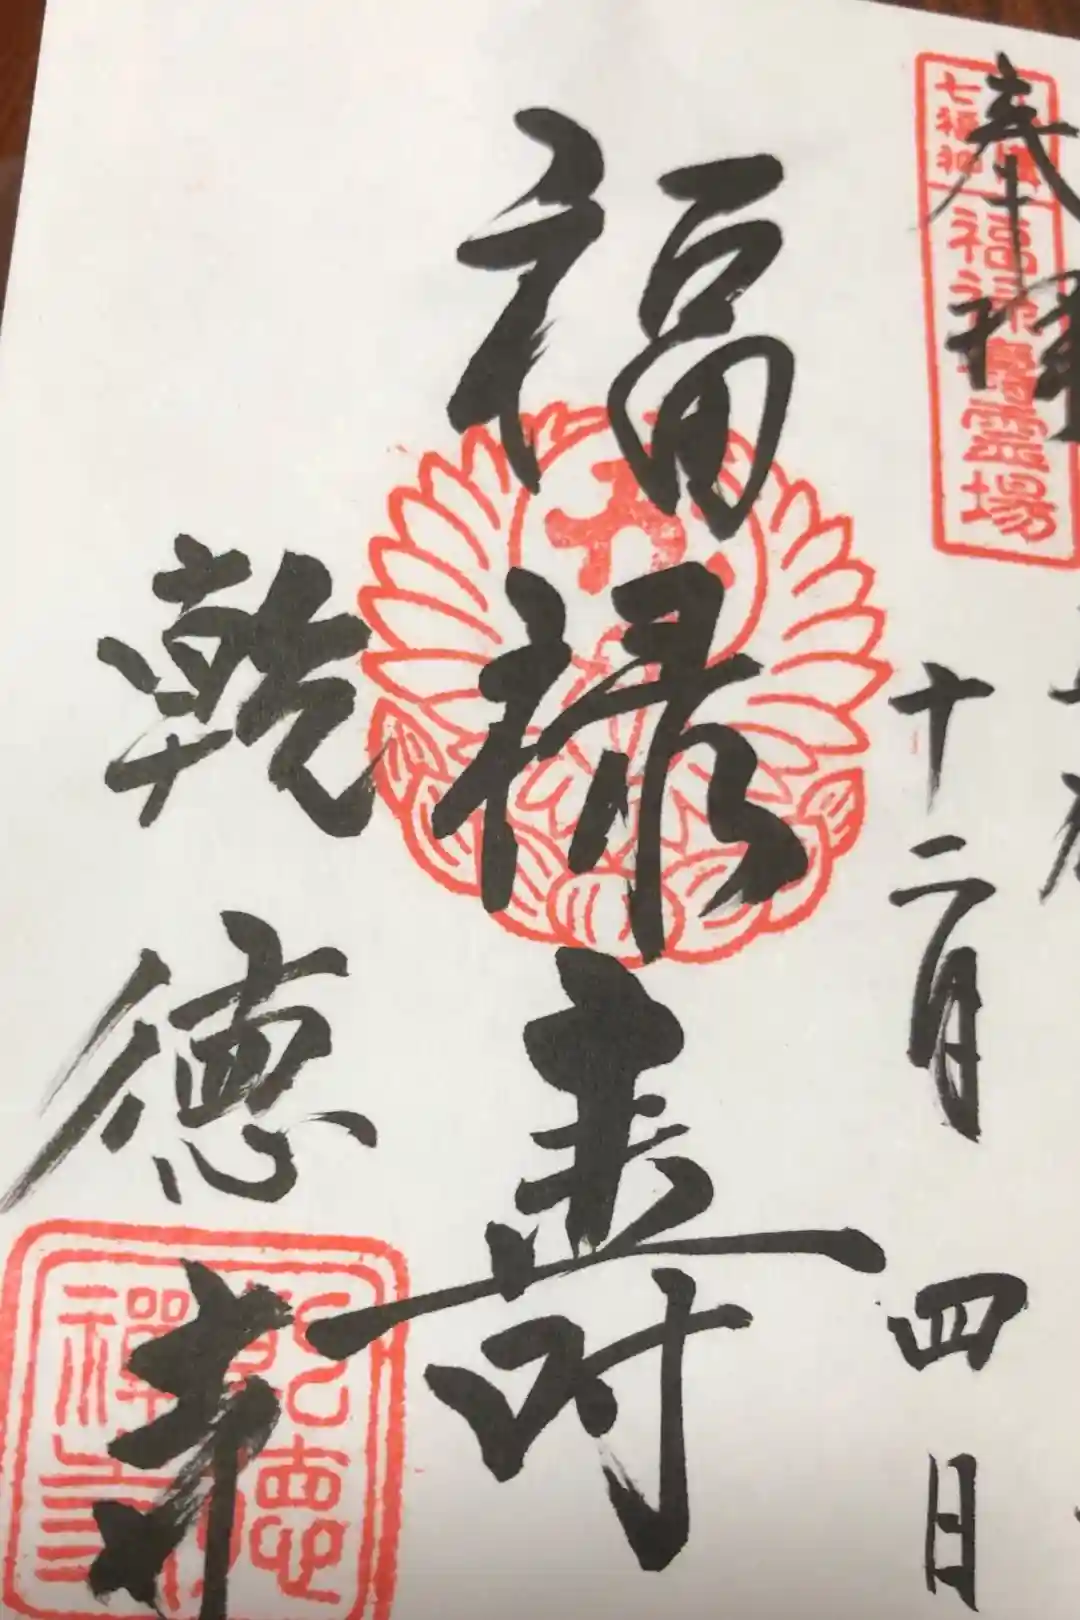 奉拝
七福神
福禄寿霊場
十二月四日
福禄寿
乾徳寺
乾徳
禅寺